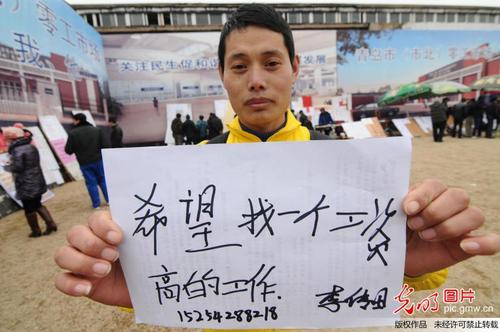 零工市场
我
关注民生促和
发展
青岛市(市北)零
希望找一个工资
高的工作.
15254288218
光明图片
pic.gmw.cn
版权作品 未经许可禁止转载